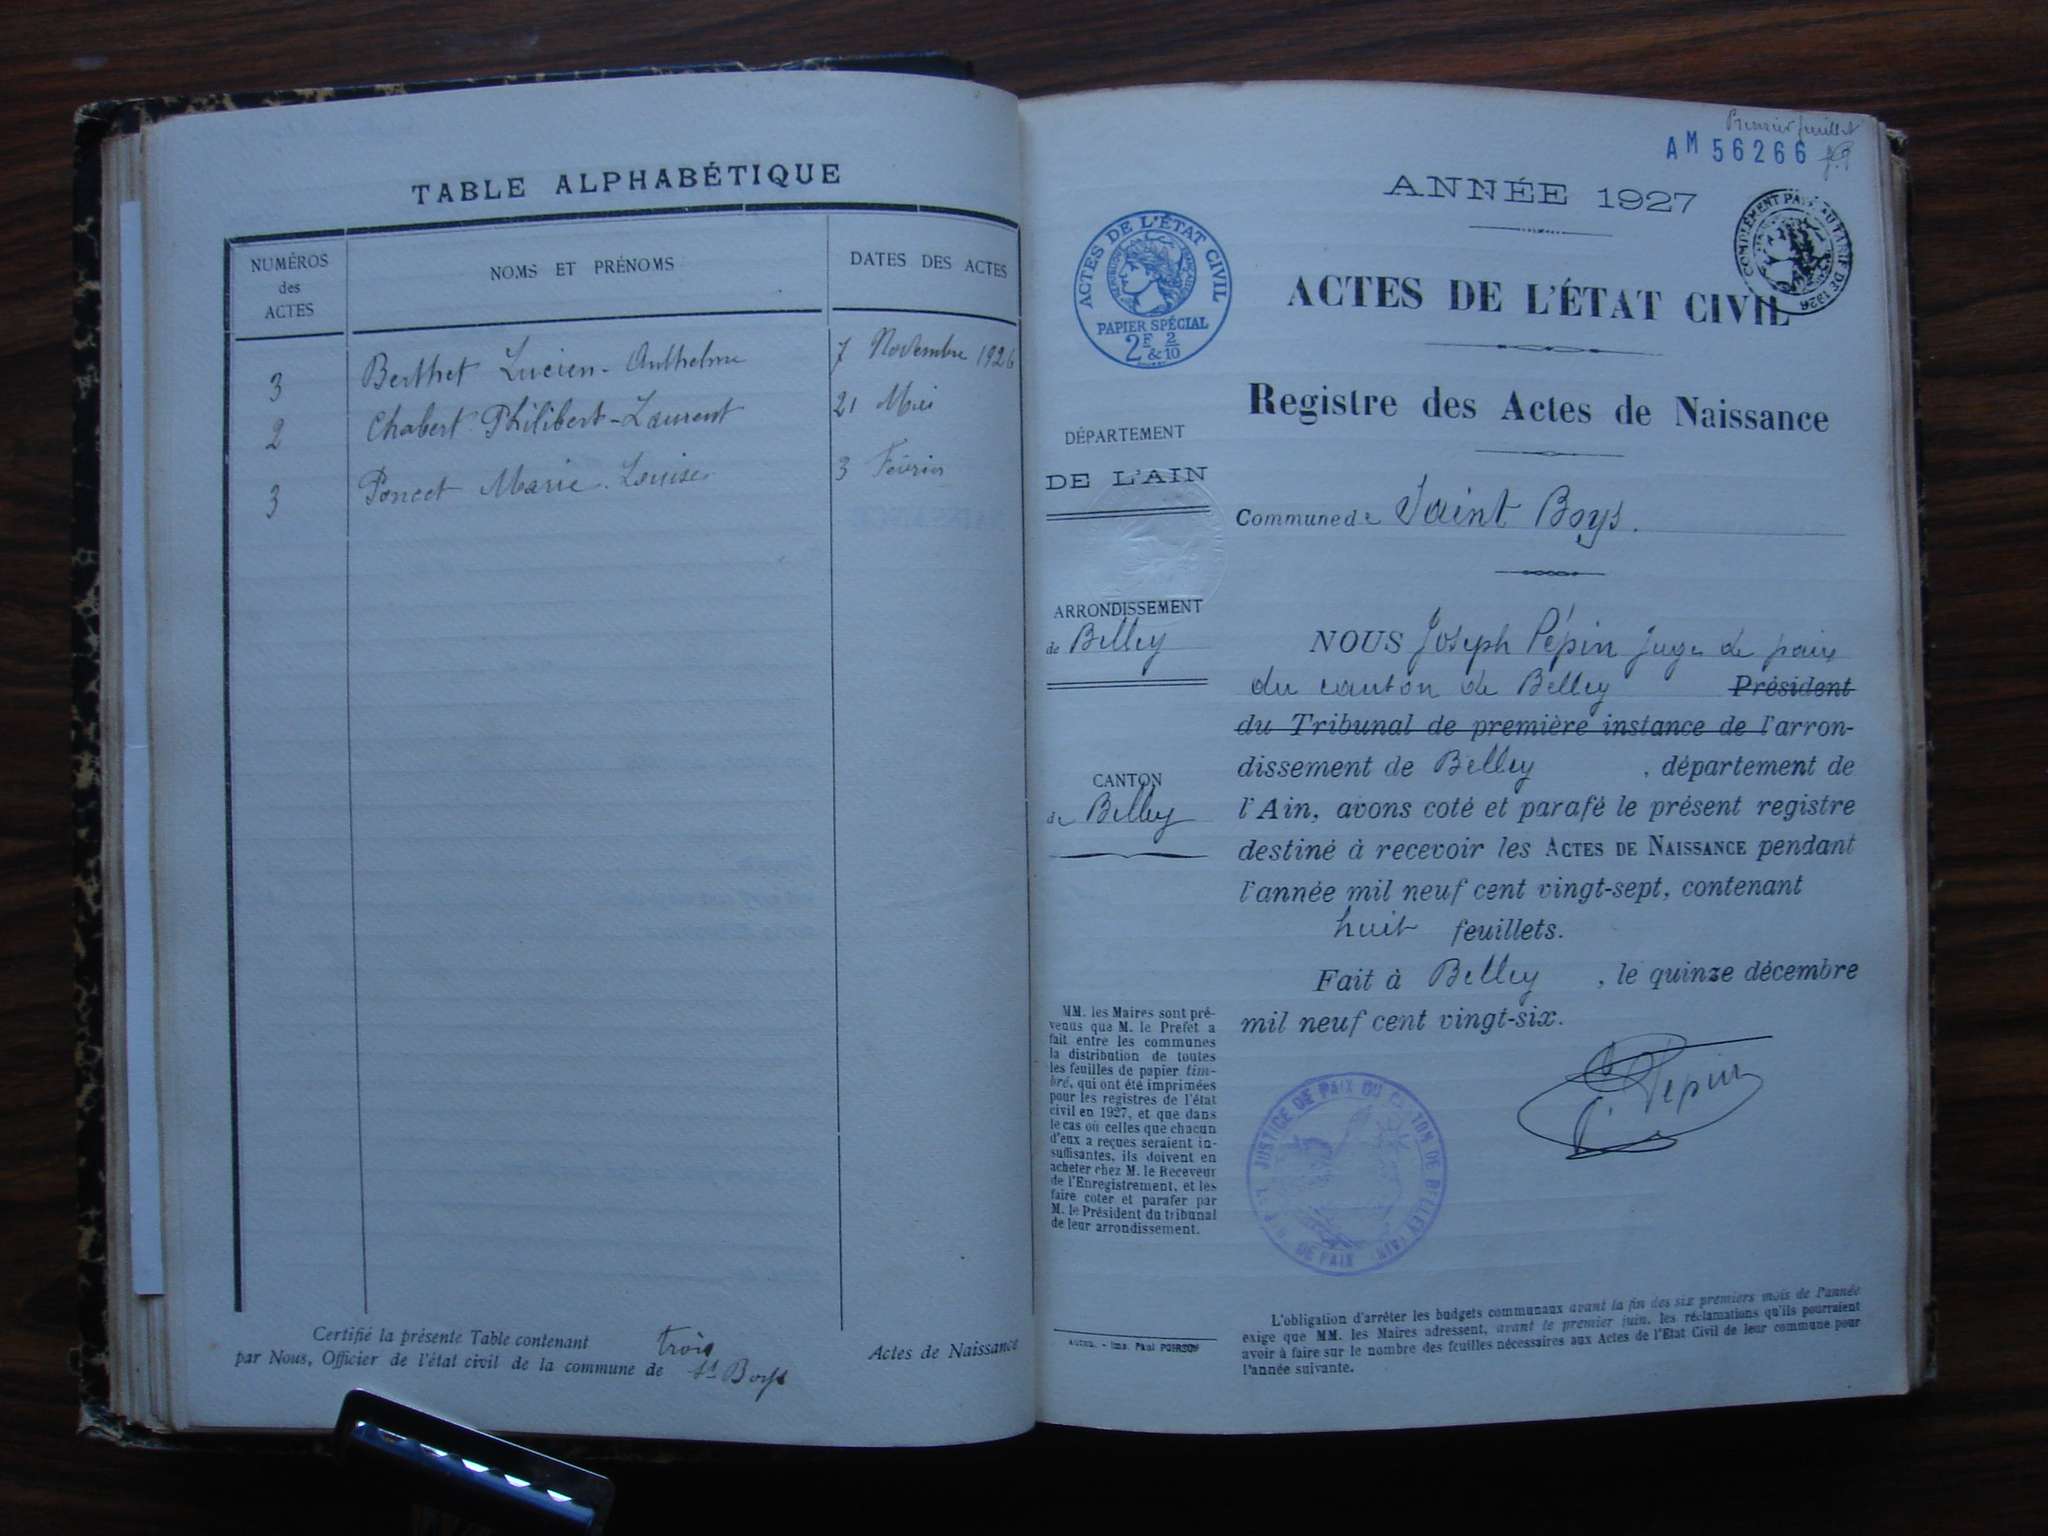 TABLE ALPHABÉTIQUE
NUMÉROS
des
ACTES
NOMS ET PRÉNOMS
DATES DES ACTES
3 Berthet Lucien-Anthelme 7 Novembre 1926
2 Chabert Philibert-Laurent 21 Mai
3 Poncet Marie Louise 3 Février
Certifié la présente Table contenant trois Actes de Naissance
par Nous, Officier de l'état civil de la commune de St Boys
Premier feuillet
AM 56266
ANNÉE 1927
ACTES DE L'ÉTAT CIVIL
RÉPUBLIQUE FRANÇAISE
PAPIER SPÉCIAL
2F 2
& 10
COMPLÉMENT PAYÉ AU TARIF DE 1926
ACTES DE L'ÉTAT CIVIL
Registre des Actes de Naissance
DÉPARTEMENT
DE L'AIN
Commune de Saint Boys.
ARRONDISSEMENT
de Belley
CANTON
de Belley
NOUS Joseph Pépin Juge de paix
du canton de Belley Président
du Tribunal de première instance de l'arron-
dissement de Belley , département de
l'Ain, avons coté et parafé le présent registre
destiné à recevoir les ACTES DE NAISSANCE pendant
l'année mil neuf cent vingt-sept, contenant
huit feuillets.
Fait à Belley , le quinze décembre
mil neuf cent vingt-six.
Pépin
JUSTICE DE PAIX DU CANTON DE BELLEY (AIN)
DE PAIX
MM. les Maires sont pré-
venus que M. le Prefet a
fait entre les communes
la distribution de toutes
les feuilles de papier tim-
bré, qui ont été imprimées
pour les registres de l'état
civil en 1927, et que dans
le cas où celles que chacun
d'eux a reçues seraient in-
suffisantes, ils doivent en
acheter chez M. le Receveur
de l'Enregistrement, et les
faire coter et parafer par
M. le Président du tribunal
de leur arrondissement.
Imp. Paul POIRSON
L'obligation d'arrêter les budgets communaux avant la fin des six premiers mois de l'année
exige que MM. les Maires adressent, avant le premier juin, les réclamations qu'ils pourraient
avoir à faire sur le nombre des feuilles nécessaires aux Actes de l'État Civil de leur commune pour
l'année suivante.